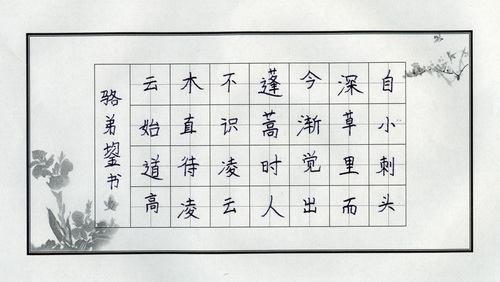 自小刺头
深草里而
今渐觉出
蓬蒿时人
不识凌云
木直待凌
云始道高
骆弟书